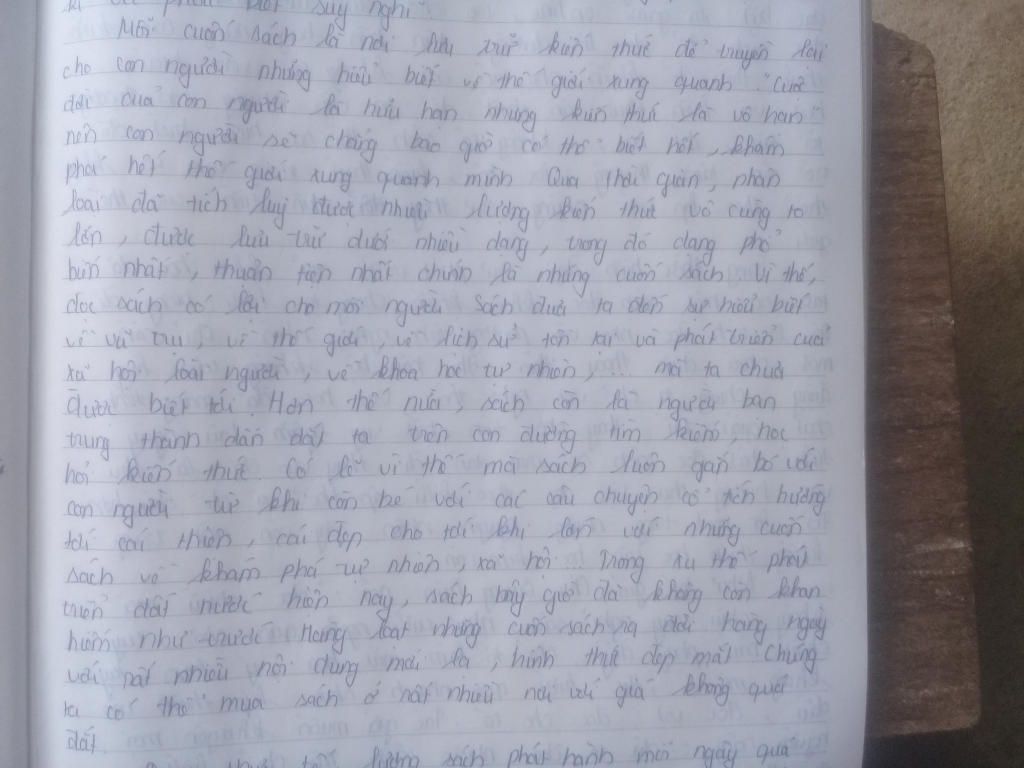 suy nghĩ".
Mỗi cuốn sách là nơi lưu trữ kiến thức để truyền lại
cho con người những hiểu biết về thế giới xung quanh. Cuộc
đời của con người là hữu hạn nhưng kiến thức là vô hạn
nên con người sẽ chẳng bao giờ có thể biết hết, khám
phá hết thế giới xung quanh mình. Qua thời gian, nhân
loại đã tích luỹ được những lượng kiến thức vô cùng to
lớn, được lưu trữ dưới nhiều dạng, trong đó dạng phổ
biến nhất, thuận tiện nhất chính là những cuốn sách. Vì thế,
đọc sách có lợi cho mỗi người. Sách đưa ta đến sự hiểu biết
về vũ trụ, về thế giới, về lịch sử tồn tại và phát triển của
xã hội loài người, về khoa học tự nhiên, mà ta chưa
được biết tới. Hơn thế nữa, sách còn là người bạn
trung thành dẫn dắt ta trên con đường tìm kiếm, học
hỏi kiến thức. Có lẽ vì thế mà sách luôn gắn bó với
con người từ khi còn bé với các câu chuyện cổ tích hướng
tới cái thiện, cái đẹp cho tới khi lớn với những cuốn
sách về khám phá tự nhiên xã hội. Trong xu thế phát
triển đất nước hiện nay, sách bây giờ đã không còn khan
hiếm như trước. Hàng loạt những cuốn sách ra đời hàng ngày
với rất nhiều nội dung mới lạ, hình thức đẹp mắt. Chúng
ta có thể mua sách ở rất nhiều nơi với giá không quá
đắt.
lượng sách phát hành mỗi ngày quá